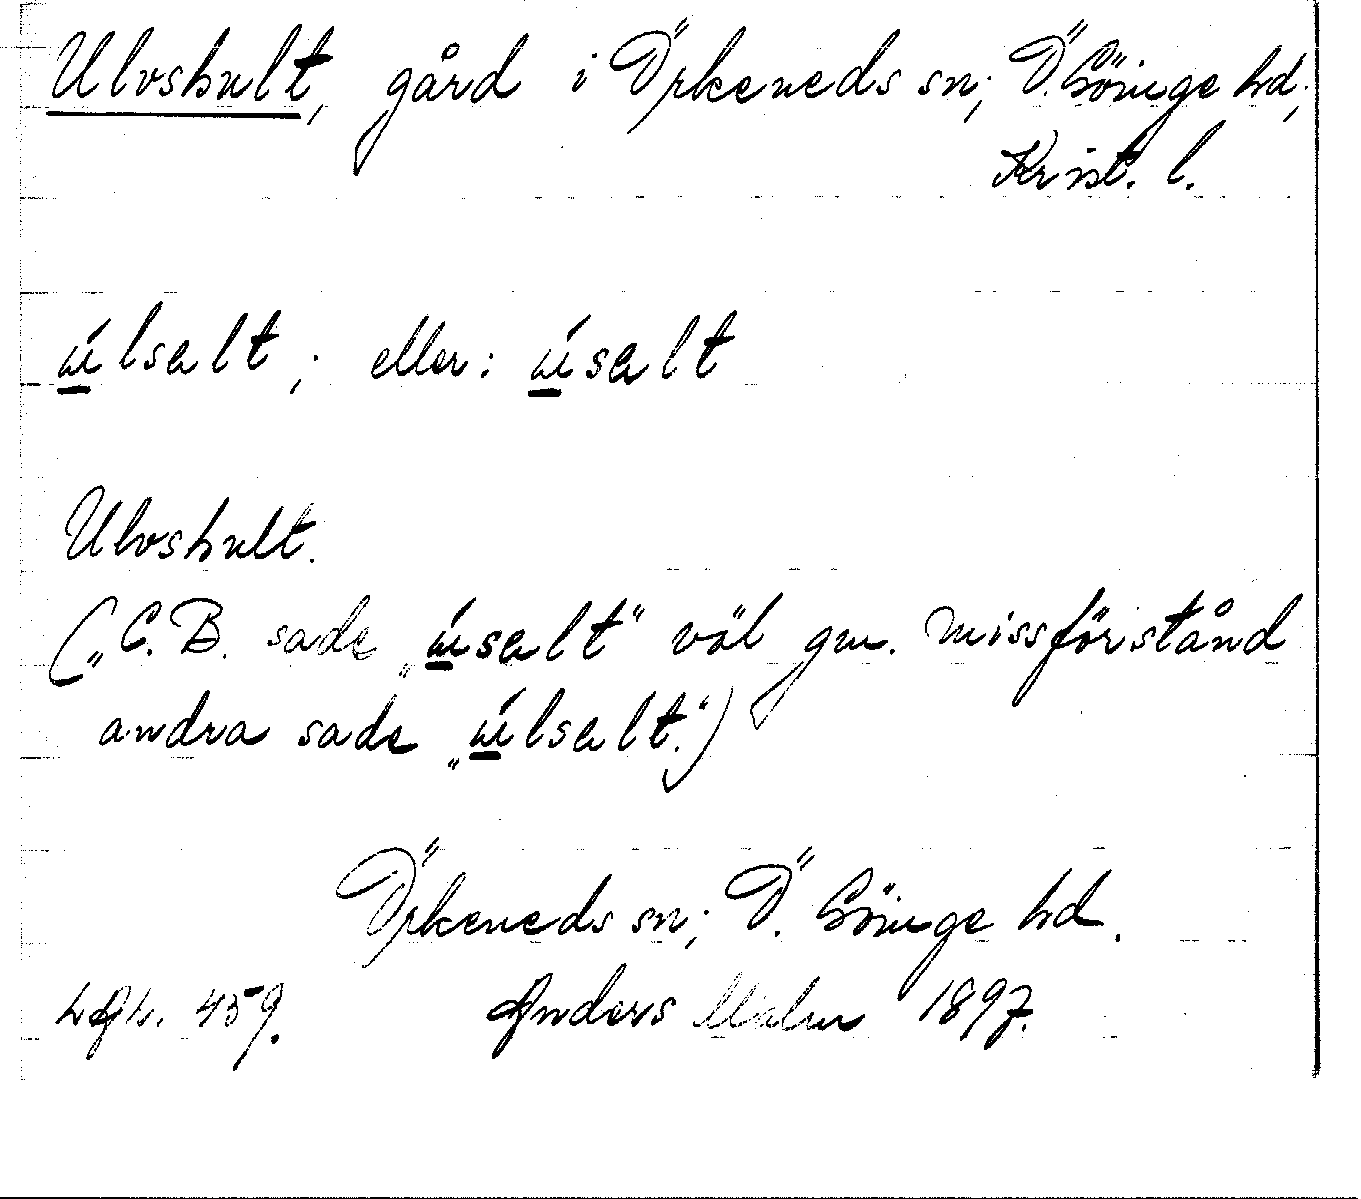 Ulvshult, gård i Örkeneds sn; Ö. Göinge hd;
Krist. l.
úlsalt; eller: úsalt
Ulvshult.
(„C.B. sade „úsalt“ väl gm. missförstånd
andra sade „úlsalt.“)
Örkeneds sn; Ö. Göinge hd.
459. Anders Malm 1897.